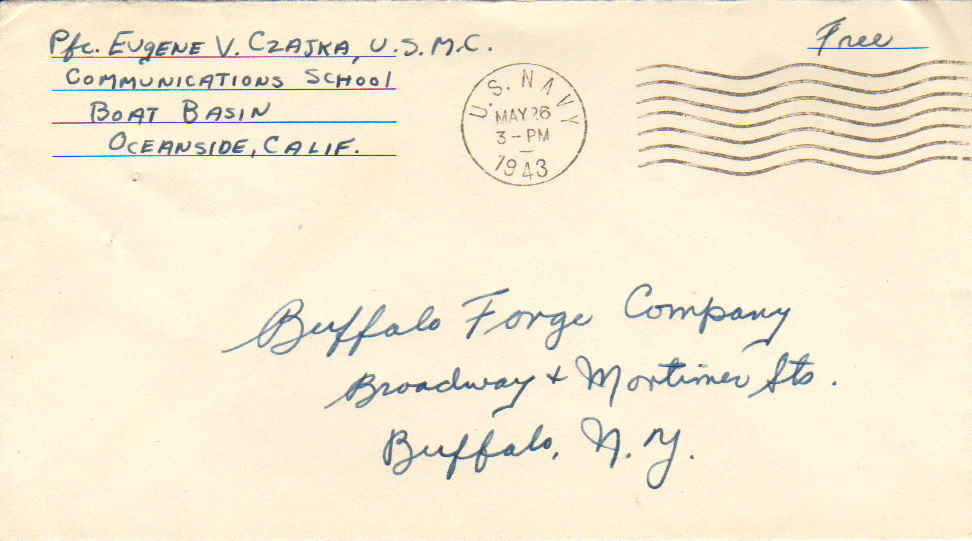 Pfc. EUGENE V. CZAJKA, U.S.M.C.
COMMUNICATIONS SCHOOL
BOAT BASIN
OCEANSIDE, CALIF.
Free
U.S. NAVY
MAY 26
3-PM
1943
Buffalo Forge Company
Broadway + Mortimer Sts.
Buffalo, N.Y.